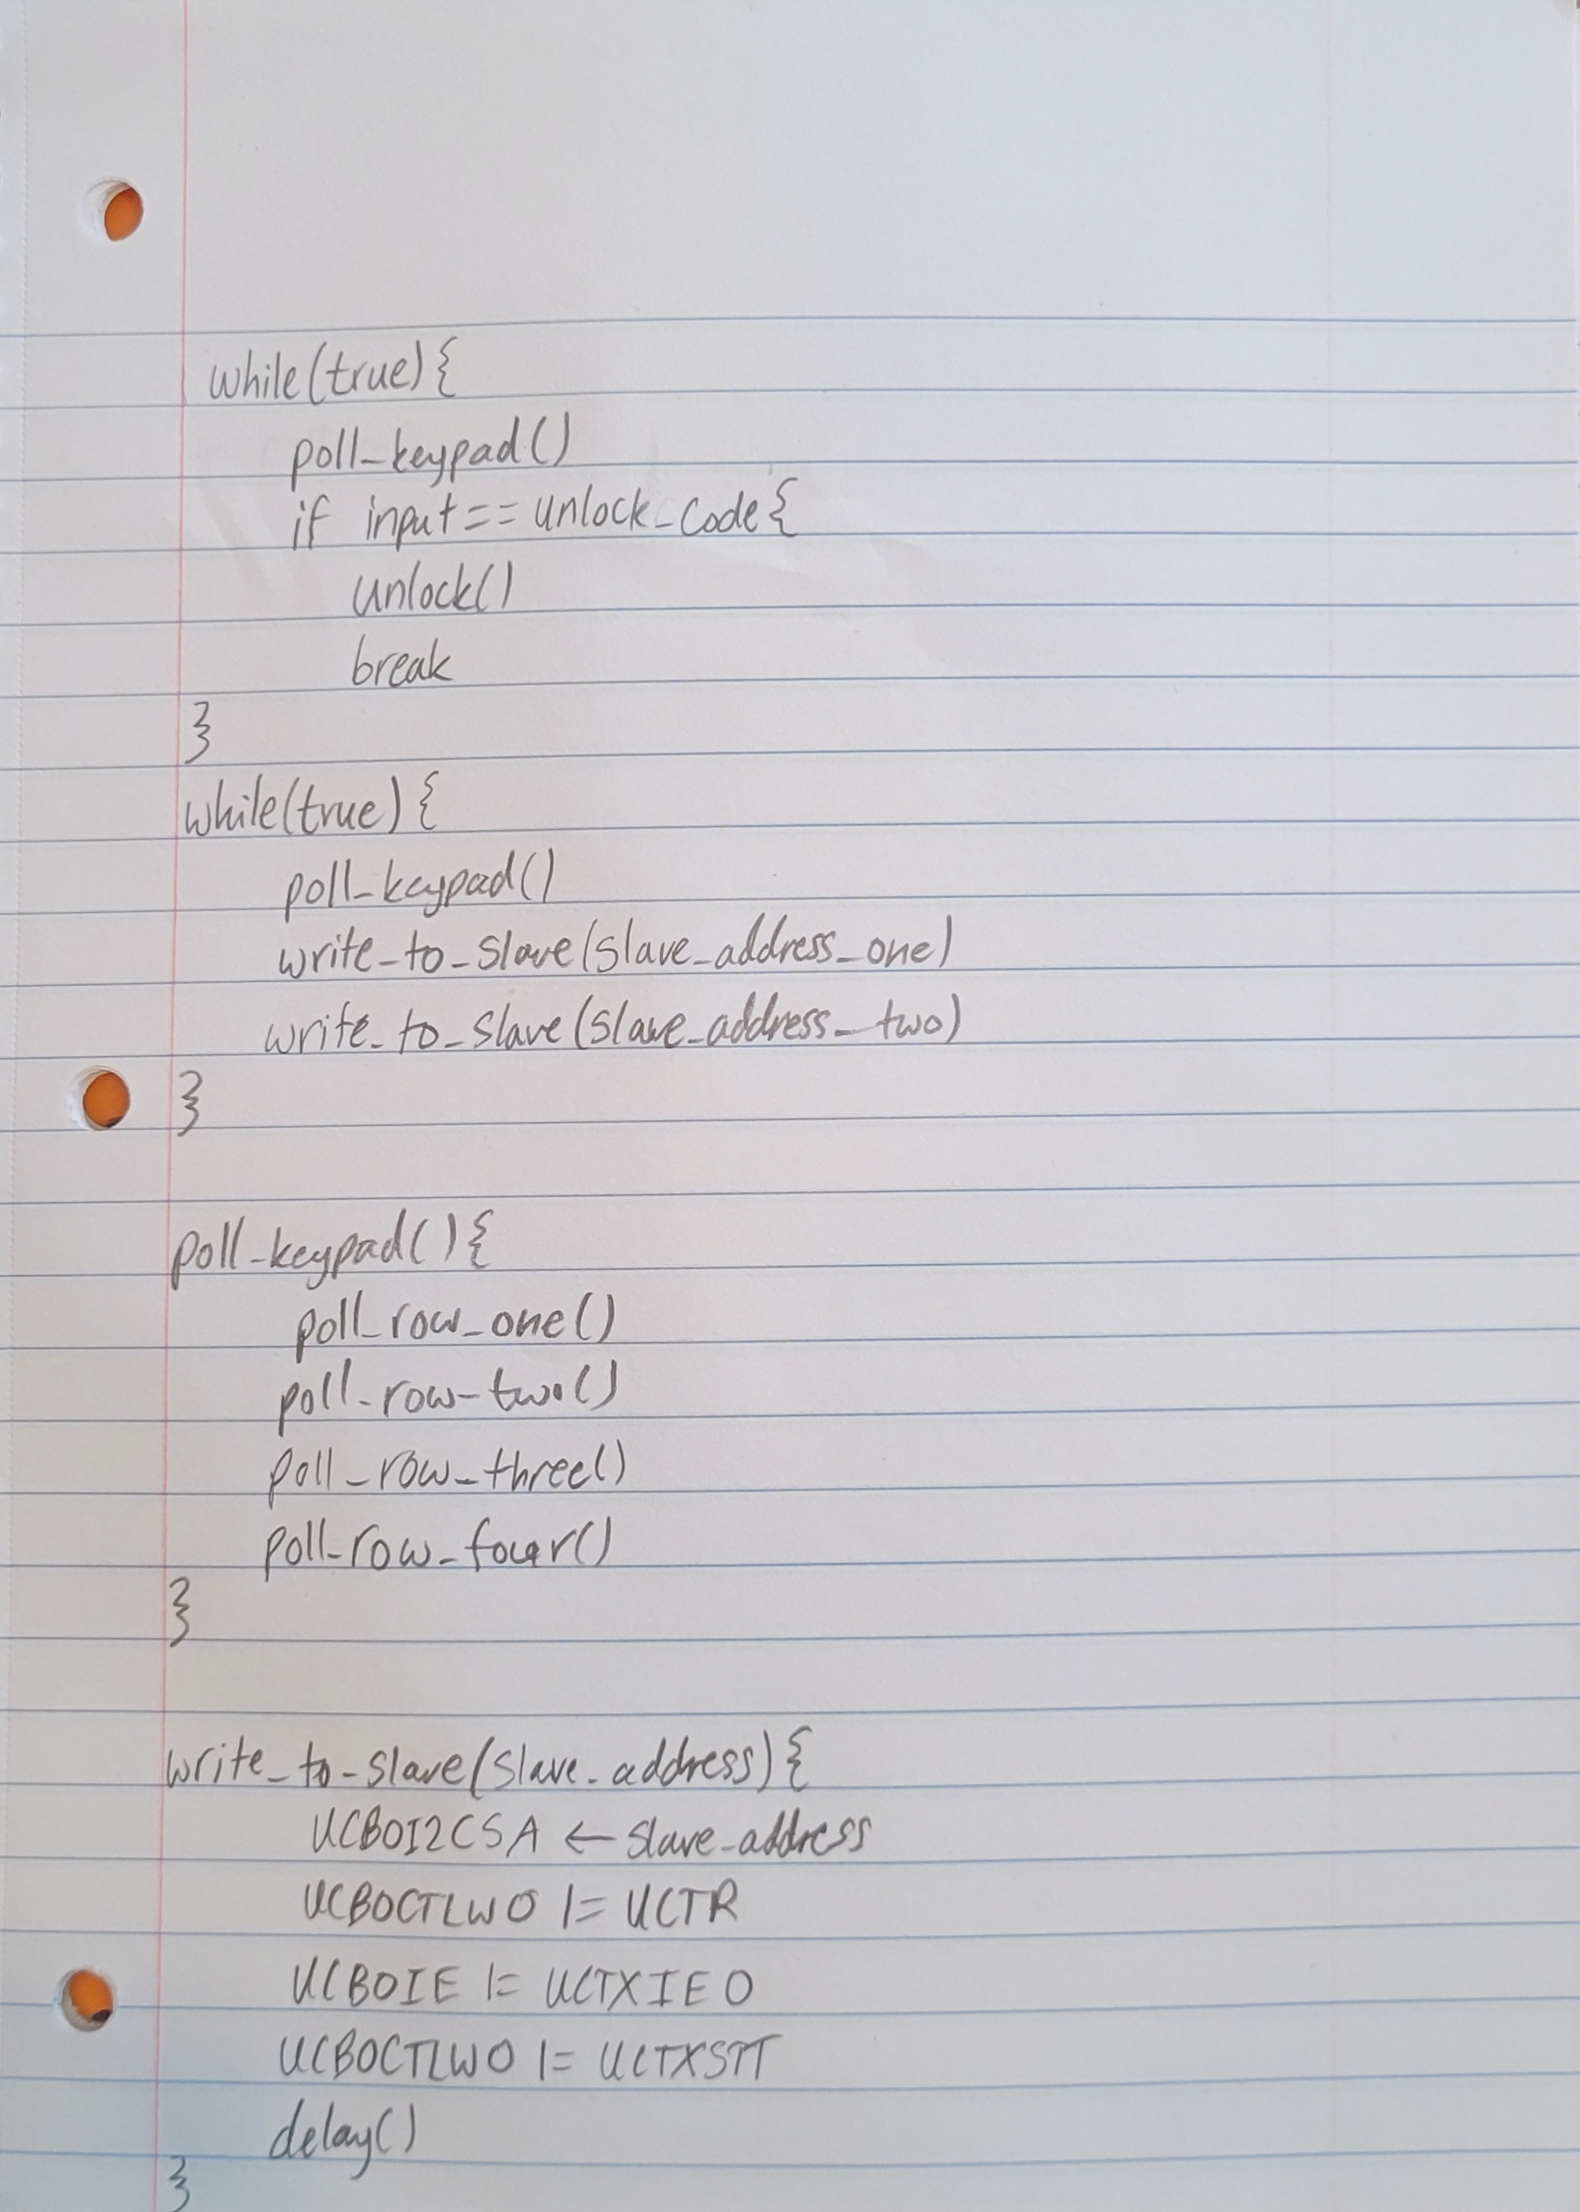 while(true){
poll_keypad()
if input == unlock_code{
unlock()
break
}
while(true){
poll_keypad()
write_to_slave(slave_address_one)
write_to_slave(slave_address_two)
}
poll_keypad(){
poll_row_one()
poll_row_two()
poll_row_three()
poll_row_four()
}
write_to_slave(slave_address){
UCB0I2CSA ← slave_address
UCB0CTLW0 |= UCTR
UCB0IE |= UCTXIE0
UCB0CTLW0 |= UCTXSTT
delay()
}